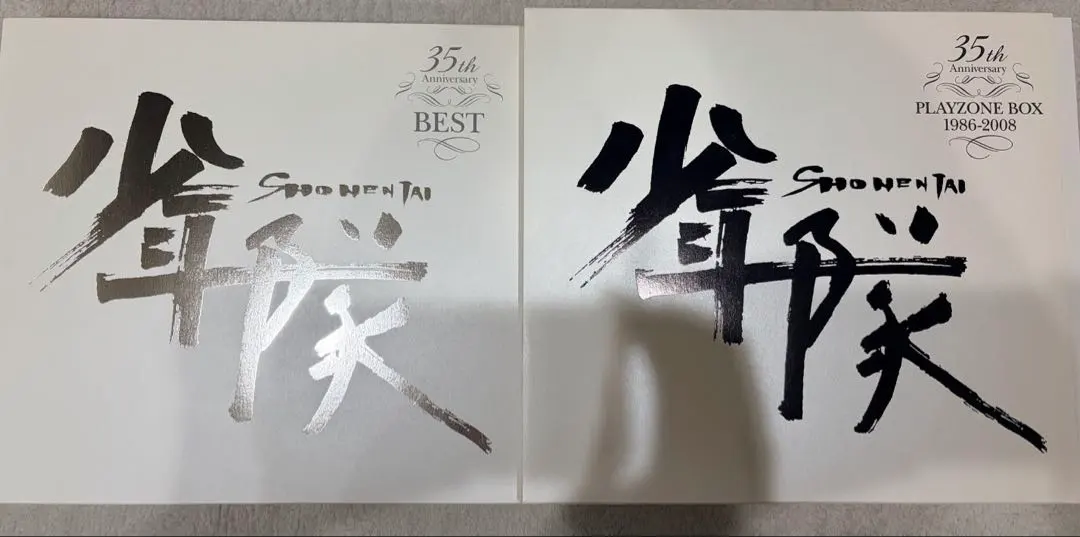 35th
Anniversary
BEST
少年隊
SHONENTAI
35th
Anniversary
PLAYZONE BOX
1986-2008
少年隊
SHONENTAI